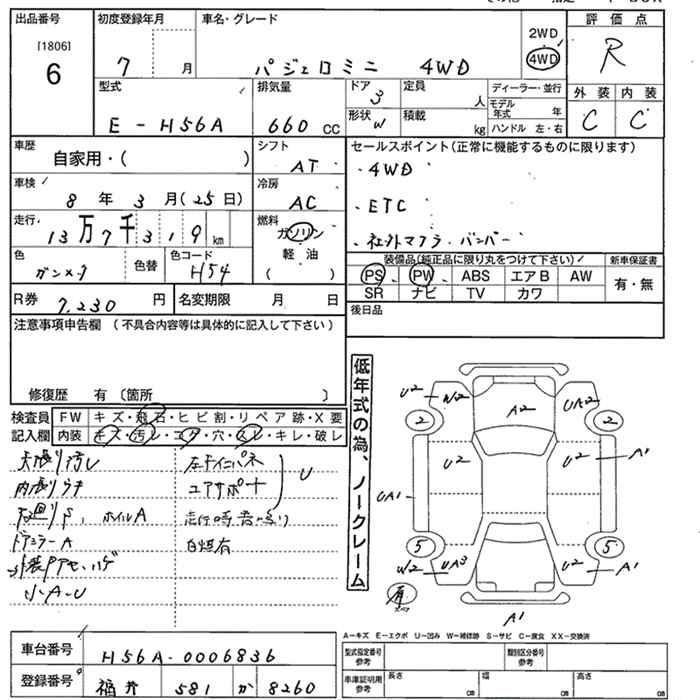 出品番号 初度登録年月 車名・グレード 2WD 評価点
[1806] 6 7 月 パジェロミニ 4WD 4WD R
型式 排気量 ドア 3 定員 人 ディーラー・並行 外装 内装
E-H56A 660 CC 形状 W 積載 kg モデル年式 年 ハンドル 左・右 C C
車歴 自家用・( ) シフト AT セールスポイント(正常に機能するものに限ります)
車検 8年 3月(25日) 冷房 AC ・4WD
走行 13万7千319km 燃料 ガソリン 軽油 ( ) ・ETC
・社外マフラ・バンパー
色 ガンメタ 色替 色コード H54
装備品(純正品に限り丸をつけて下さい) 新車保証書
PS PW ABS エアB AW 有・無
SR ナビ TV カワ
R券 7,230 円 名変期限 月 日 後日品
注意事項申告欄 (不具合内容等は具体的に記入して下さい)
修復歴 有〔箇所 〕
検査員 FW キズ・飛石・ヒビ割・リペア跡・X要
記入欄 内装 キズ・汚レ・コゲ・穴・スレ・キレ・破レ
天張り汚レ
内張りウキ エアサポート U
下廻りS、ホイルA 走行時音鳴り
ドアミラーA 白煙有
小A-U
低年式の為、ノークレーム
U2 W2 A2 UA2
2 2
U2 U2 A1
UA1
5 5
W2 UA3 U2 A1
A1
A−キズ E−エクボ U−凹み W−補修跡 S−サビ C−腐食 XX−交換済
車台番号 H56A-0006836 型式指定番号 参考 類別区分番号 参考
登録番号 福井 581 か 8260 車庫証明用 参考 長さ cm 幅 cm 高さ cm